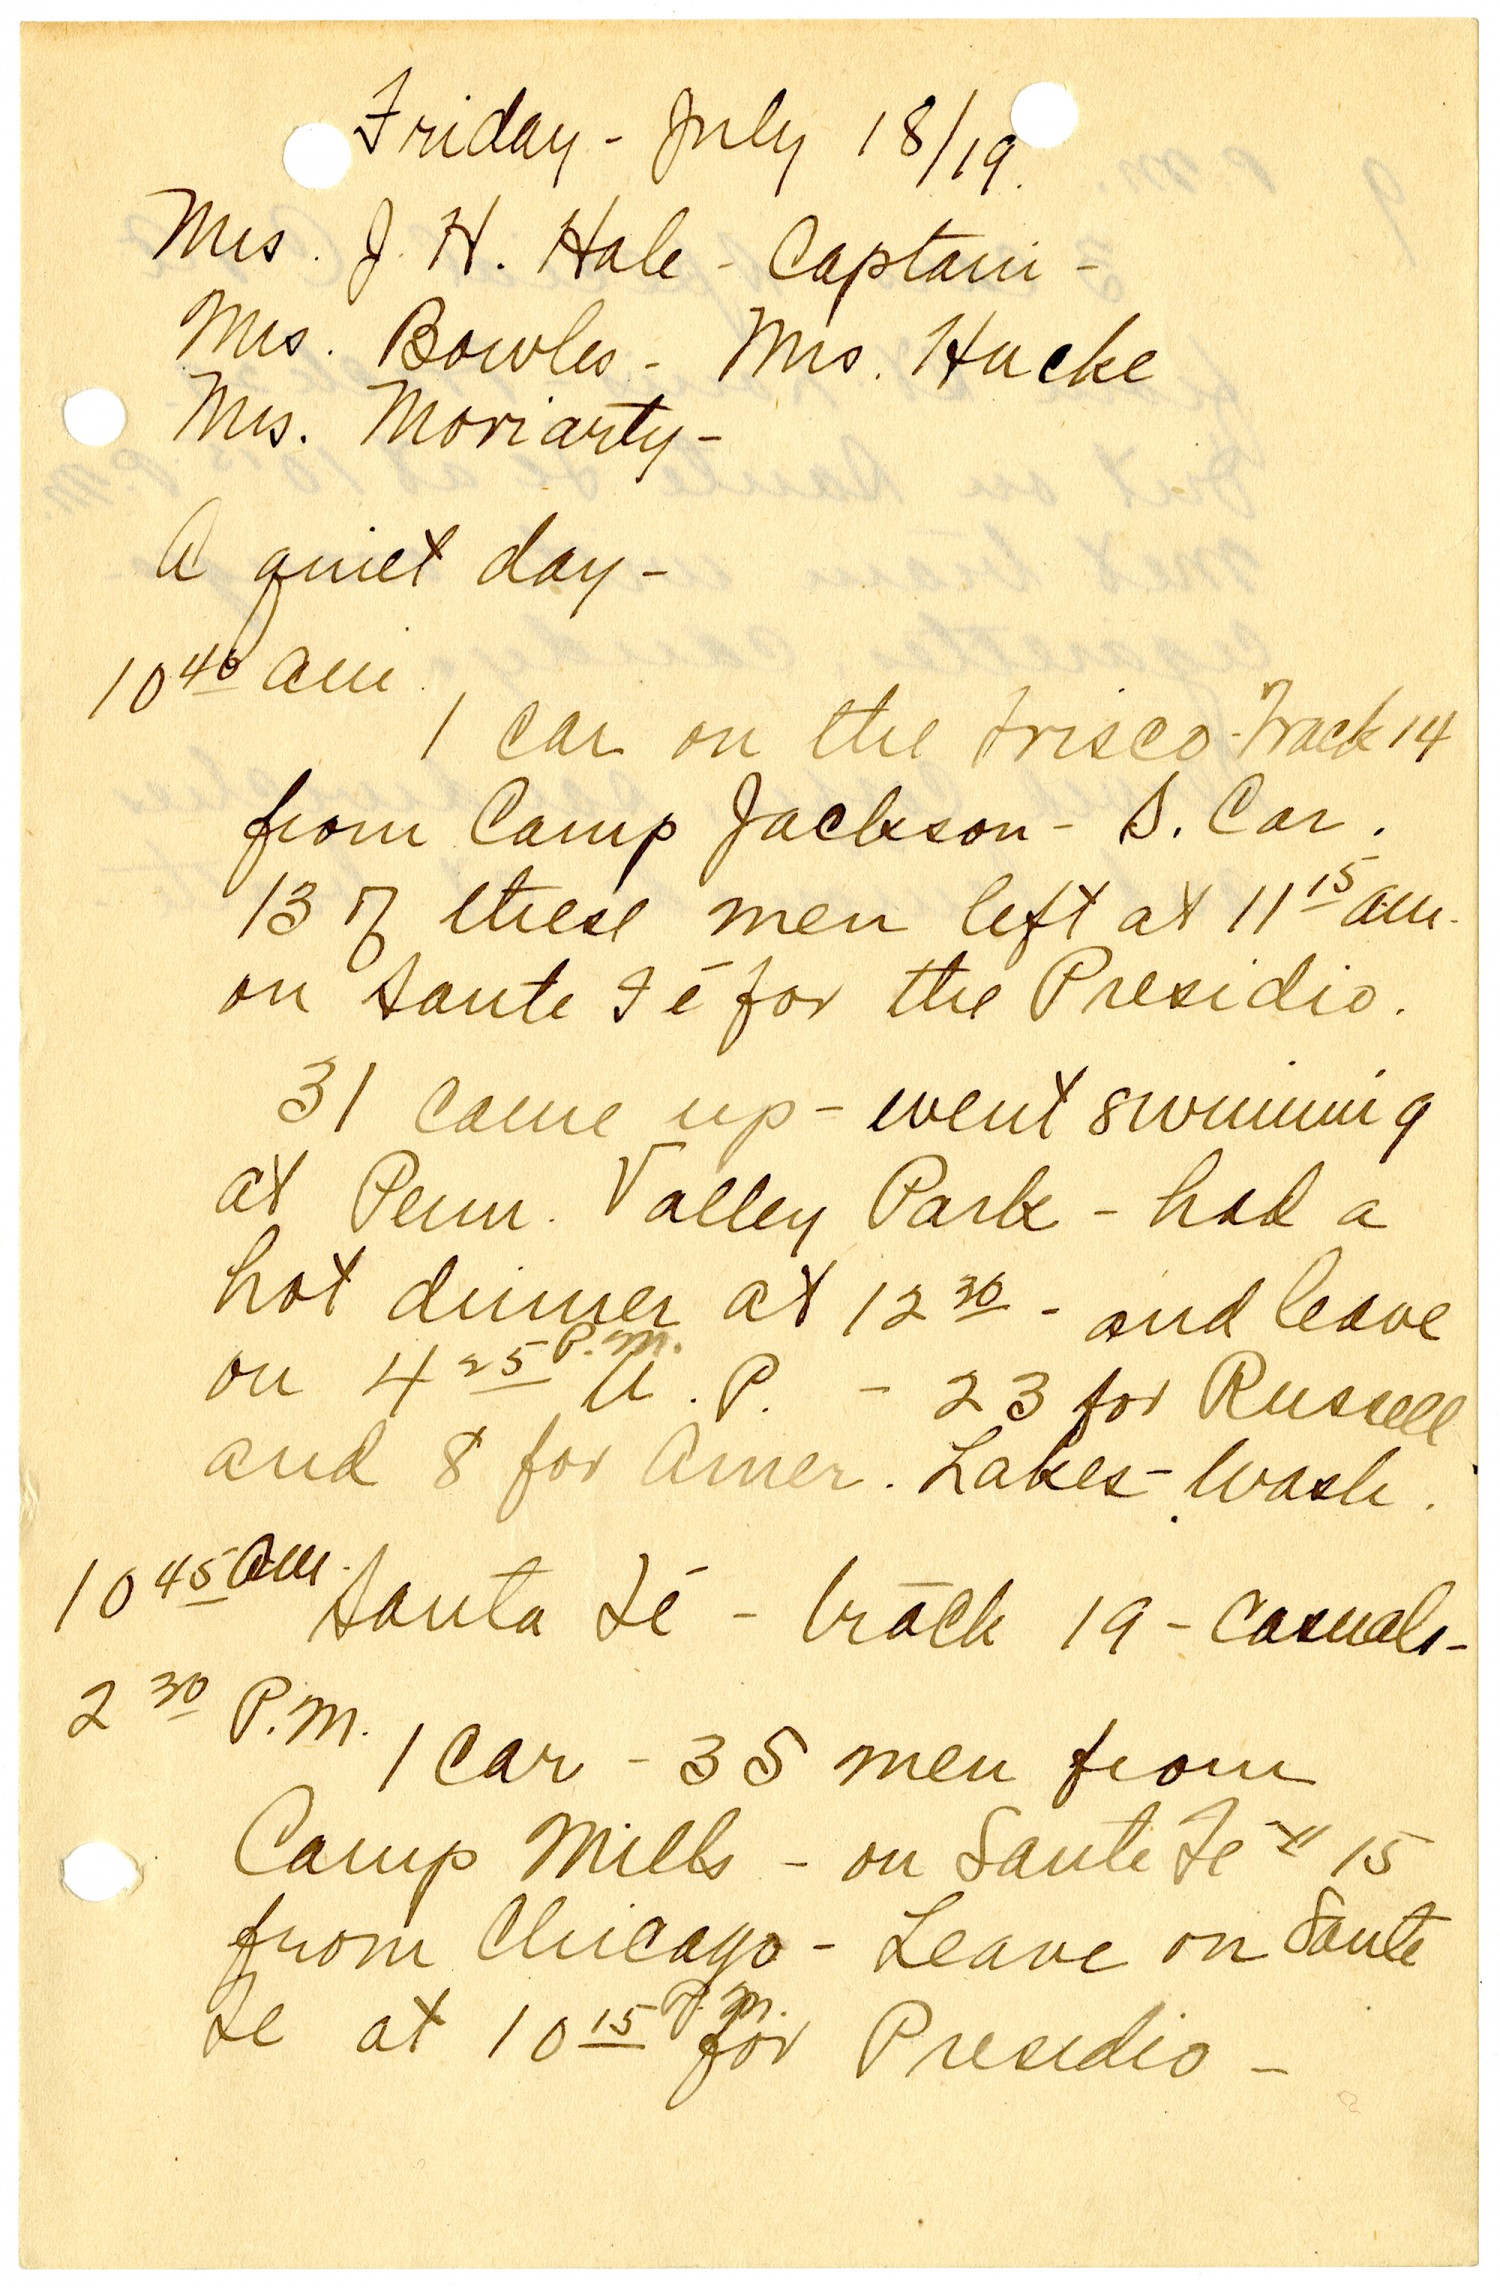 Friday - July 18/19.
Mrs. J. H. Hale - Captain -
Mrs. Bowles - Mrs. Hucke
Mrs. Moriarty -
A quiet day -
10 40 am.
1 car on the Frisco - Track 14
from Camp Jackson - S. Car.
13 of these men left at 11 15 am.
on Sante Fé for the Presidio.
31 came up - went swimming
at Penn. Valley Park - had a
hot dinner at 12 30 - and leave
on 4 25 P.M. U. P. - 23 for Russell
and 8 for Amer. Lakes - Wash.
10 45 am. Santa Fé - track 19 - Casuals -
2 30 P.M.
1 car - 35 men from
Camp Mills - on Sante Fe # 15
from Chicago - Leave on Sante
Fe at 10 15 P.M. for Presidio -